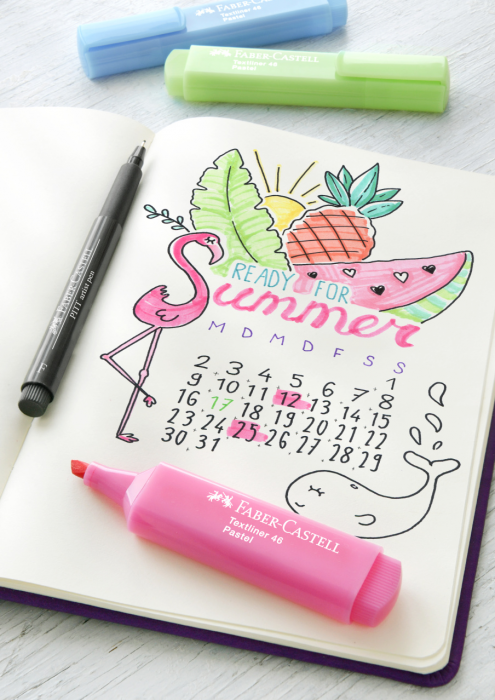 FABER-CASTELL
Textliner 46
Pastel
FABER-CASTELL
Textliner 46
Pastel
FABER-CASTELL
PITT artist pen
READY FOR
Summer
M D M D F S S
1
2 3 4 5 6 7 8
9 10 11 12 13 14 15
16 17 18 19 20 21 22
23 24 25 26 27 28 29
30 31
FABER-CASTELL
Textliner 46
Pastel